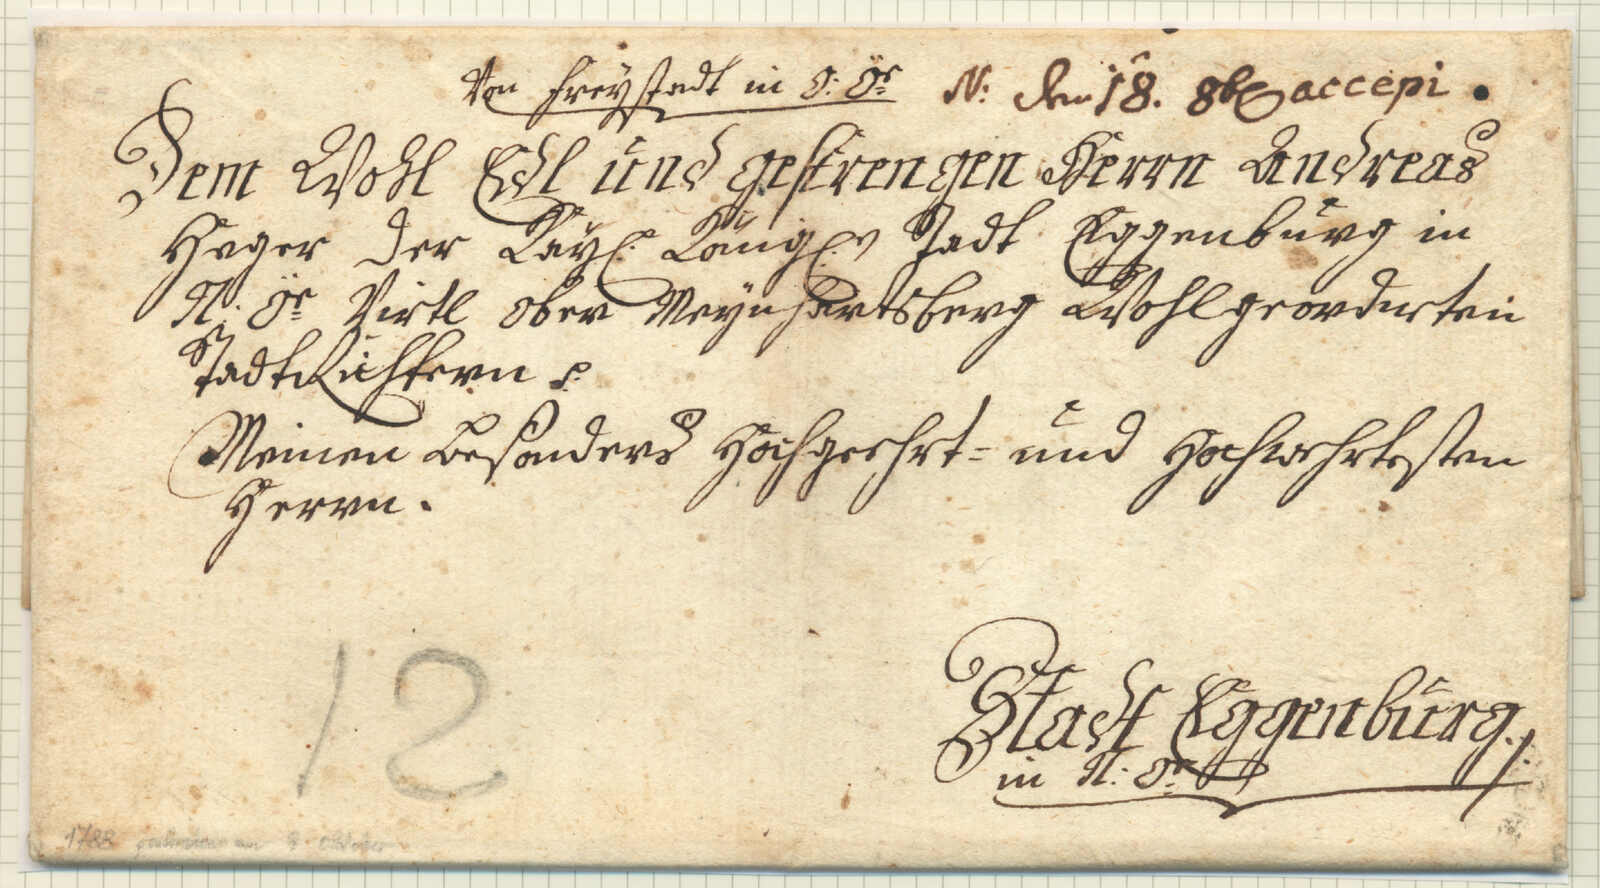 Von Freÿstadt in O: Ö:
N: den 18. 8b accepi.
Dem Wohl Edl und gestrengen Herrn Andreas
Heger der Kaÿ: König: Stadt Eggenburg in
N: Ö: Virtl ober Meÿnhartsberg Wohlgeordneten
Stadt Richtern
Meinen besonders Hochgeehrt= und Hochwehrtesten
Herrn.
12
Stadt Eggenburg
in N: Ö:
1788